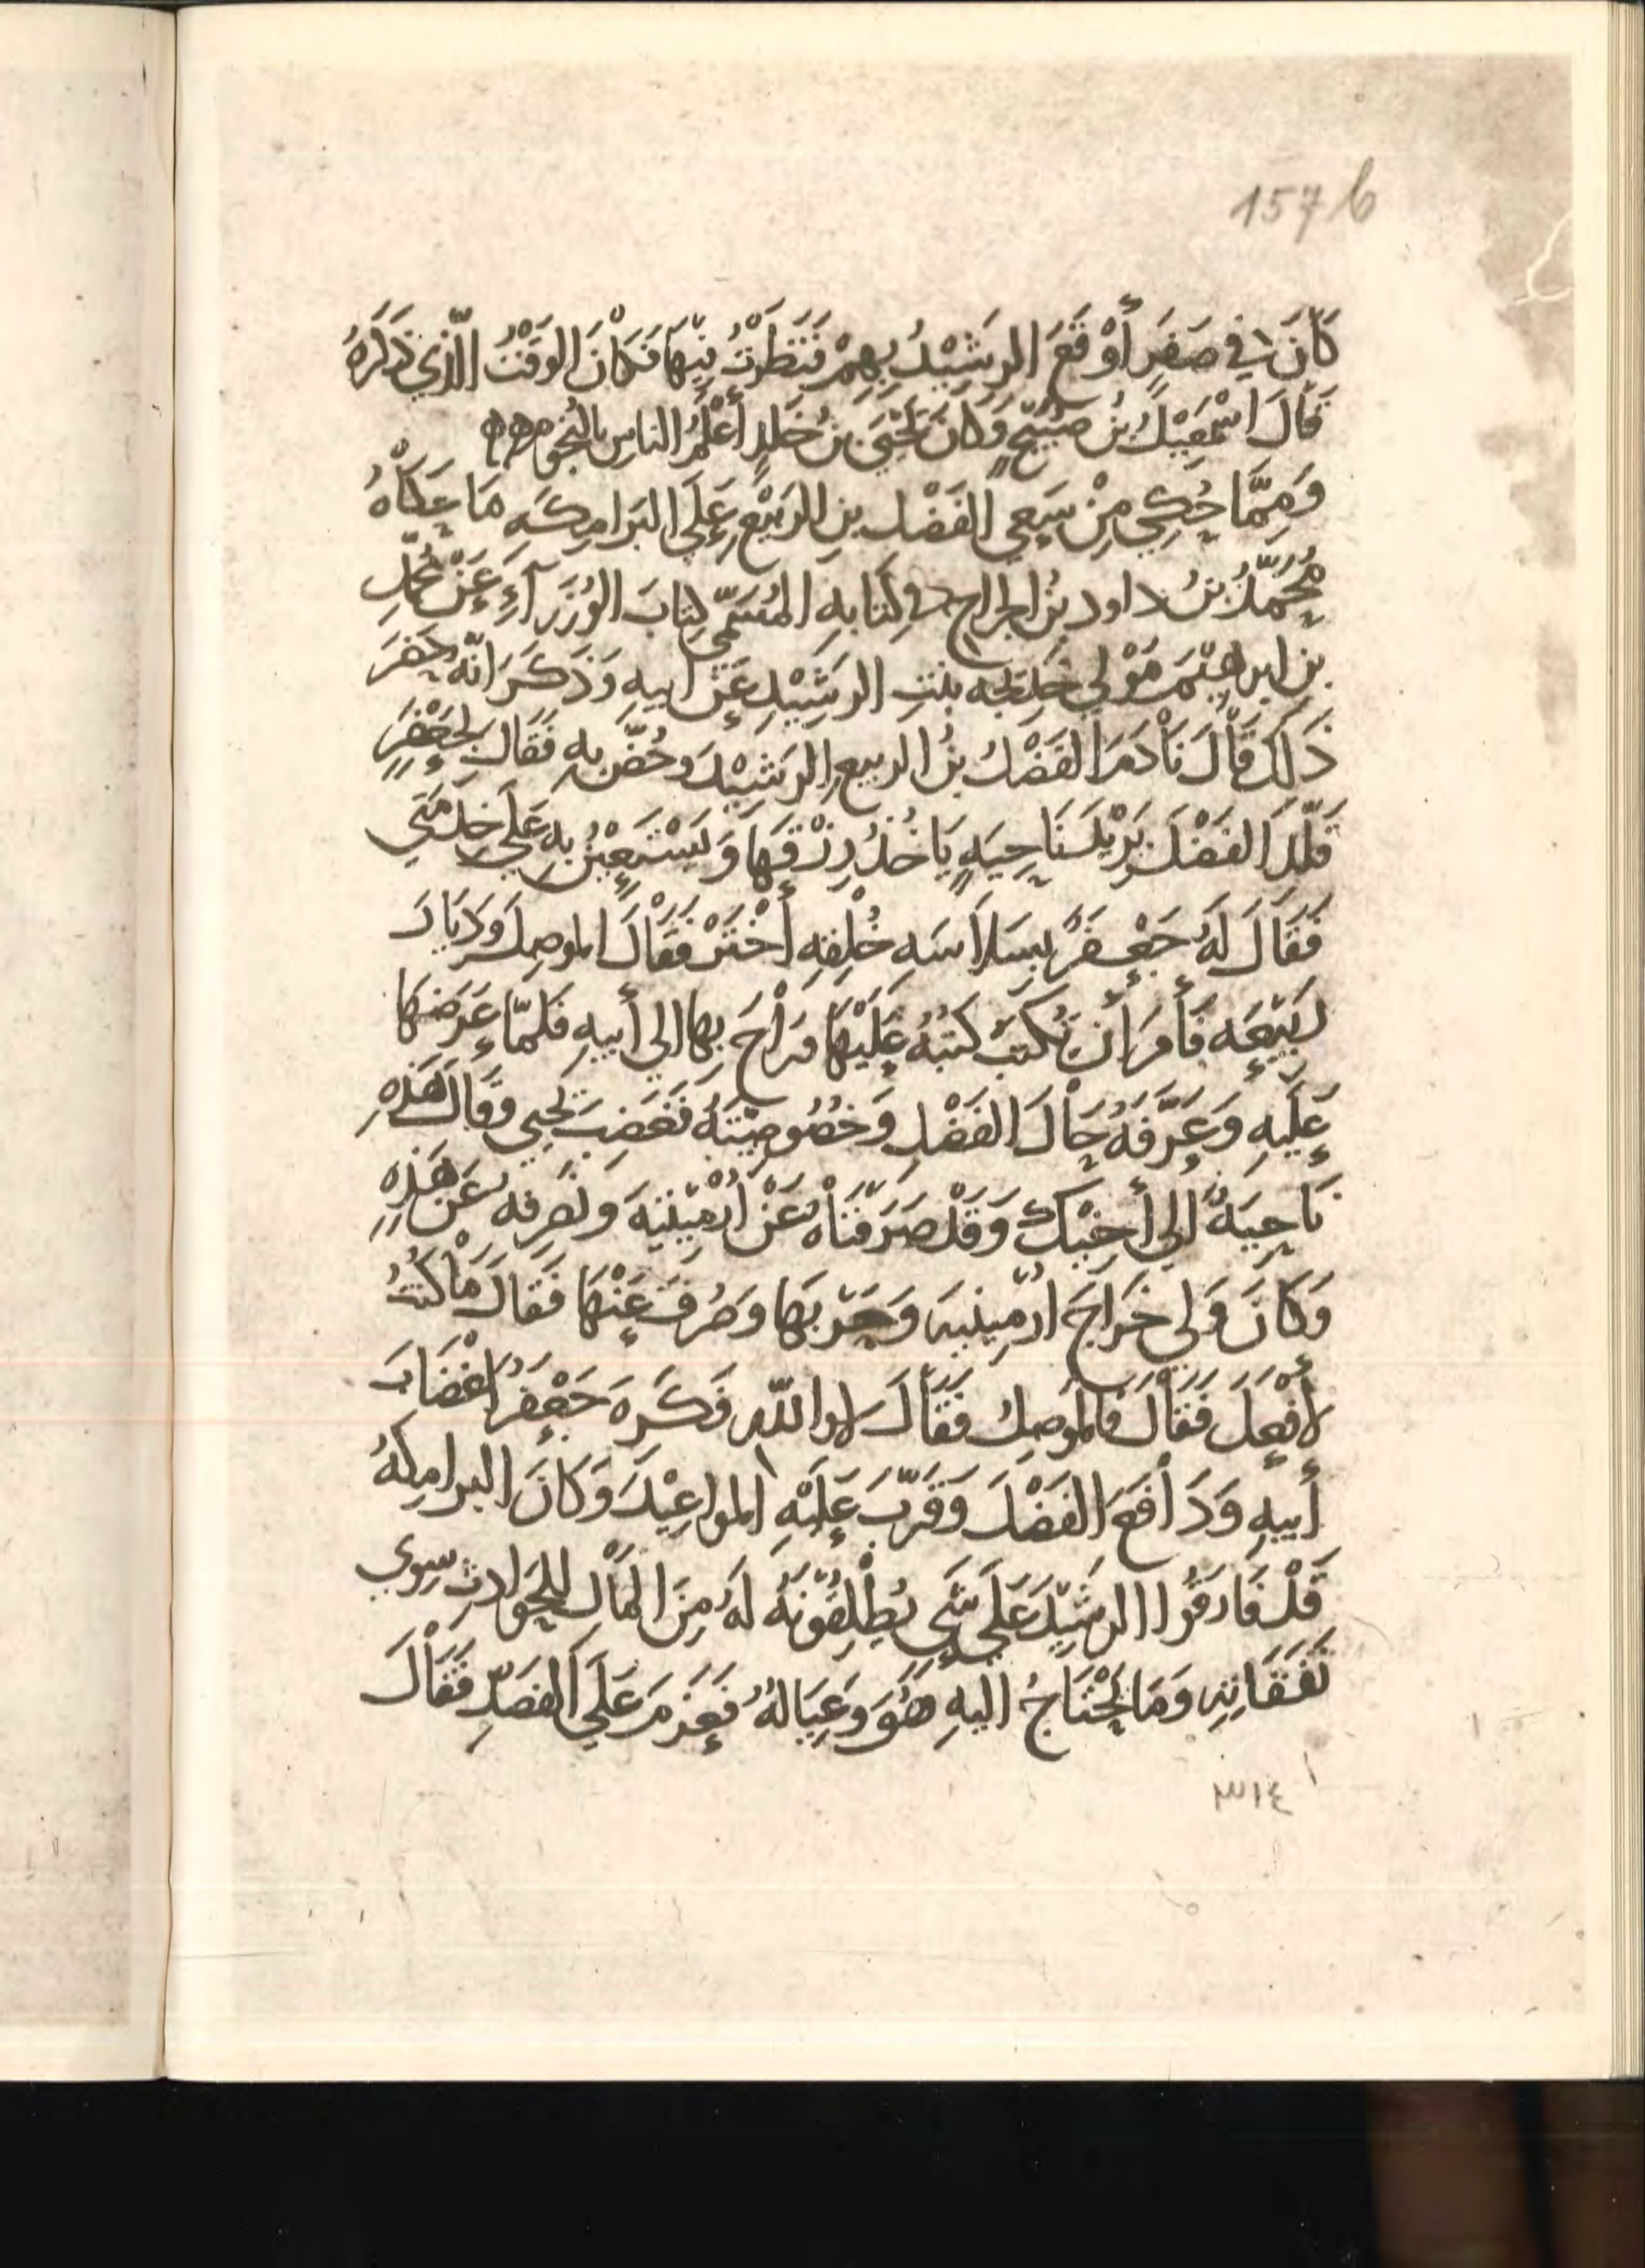 157 b
كَانَ في صَفَرٍ أَوْقَعَ الرشِيْدُ بِهِمْ فَنَظَرْتُ فِيْهَا فَكَانَ الوَقْتُ الّذي ذَكَرَهُ
قَالَ اسْمَعِيْلُ بنُ صُبَيْحٍ وَكَانَ يَحْيَى بنُ خَلدٍ أَعْلَمُ الناسِ بالنُجُومِ
وَمِمَّا حُكِي مِنْ سَعِي الفَضْل بنِ الرَبيْعِ عَلَي البَرَامِكَه مَا حَكَاْهُ
مُحَمَّدُ بنُ داود بنُ الجراح في كِتَابهِ المُسَمّي كِتابَ الوُزَرآءِ عَنْ مُحمّدِ
بنِ ابرهيْمَ مَوْلي خَدِيجه بنتِ الرشِيْدِ عَنْ ابيهِ وَذَكَرَ انّه حَضَرَ
ذَلك قَاْلَ نَاْدَمَ الفَضْلُ بنُ الربيعِ الرَشيْدَ وخُصَّ بهِ فَقَالَ لجَعْفَرٍ
قَلّدِ الفَضْلَ بَرِيْدَ نَاحِيَهٍ يَاخُذُ رِزْقَهَا وَيَسْتَعِيْنُ بهِ عَلَي خِدْمَتي
فَقَالَ لَهُ جَعْفَرٌ بسَلاسَهِ خُلْقِهِ أخْتَرْ فَقَاْلَ الموصِلَ وَدِيَارَ
رَبِيْعَه فَأَمَرَ أن تُكْتَبَ كتبُهُ عَلَيْهَا وَرَاْحَ بهَا الي أَبيهِ فَلمّا عَرَضَهَا
عَلَيهِ وَعَرَّفَهُ حَاْلَ الفَضْلِ وَخصُوصِيّتَهُ فَغَضِبَ يَحْيي وقَالَ هَذِهِ
نَاحِيَةٌ الي أَخِيْكَ وَقَدْ صَرَفْنَاْهُ عَنْ أرْمِيْنِيَهَ ونَصرِفهُ عَن هَذِهِ
وَكَانَ وَلي خَرَاجَ ارْمِينيَهَ وَحَرْبهَا وَصُرِفَ عَنْهَا فَقَالَ مَاْ كُنتُ
لأَفْعَلَ فَقَاْلَ فَالموصِلُ فَقَاْلَ لا واللّهِ فَكَرِهَ جَعْفَرُ اغْضَابَ
أَبيهِ وَدَاْفَعَ الفَضْلَ وَقَرّبَ عَلَيْهِ المواعِيْدَ وَكَانَ البرامِكَهُ
قَدْ فَارَقُوا الرشِيْدَ عَلَي شَيءٍ يُطْلِقُوْنَهُ لَهُ مِنَ المَاْلِ لِلحَوَادِثِ سِوي
نَفَقَاتِهِ وَمَا يَحْتَاجُ اليهِ هُوَ وَعِيَالهُ فَعَزَمَ عَلَي الفَصْدِ فَقَاْلَ
٣١٤